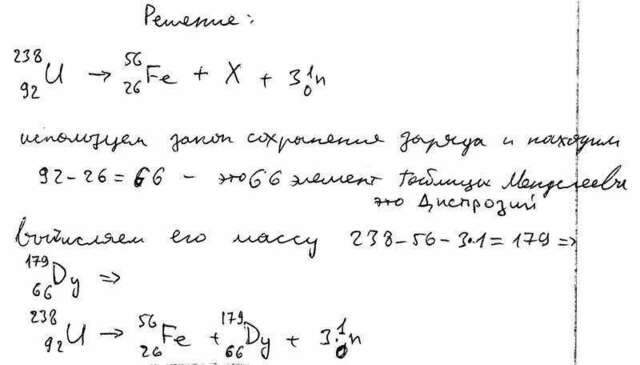 Решение:
²³⁸₉₂U → ⁵⁶₂₆Fe + X + 3¹₀n
используем закон сохранения заряда и находим
92-26=66 - это 66 элемент таблицы Менделеева
это Диспрозий
вычисляем его массу 238-56-3·1=179 =>
¹⁷⁹₆₆Dy =>
²³⁸₉₂U → ⁵⁶₂₆Fe + ¹⁷⁹₆₆Dy + 3·¹₀n